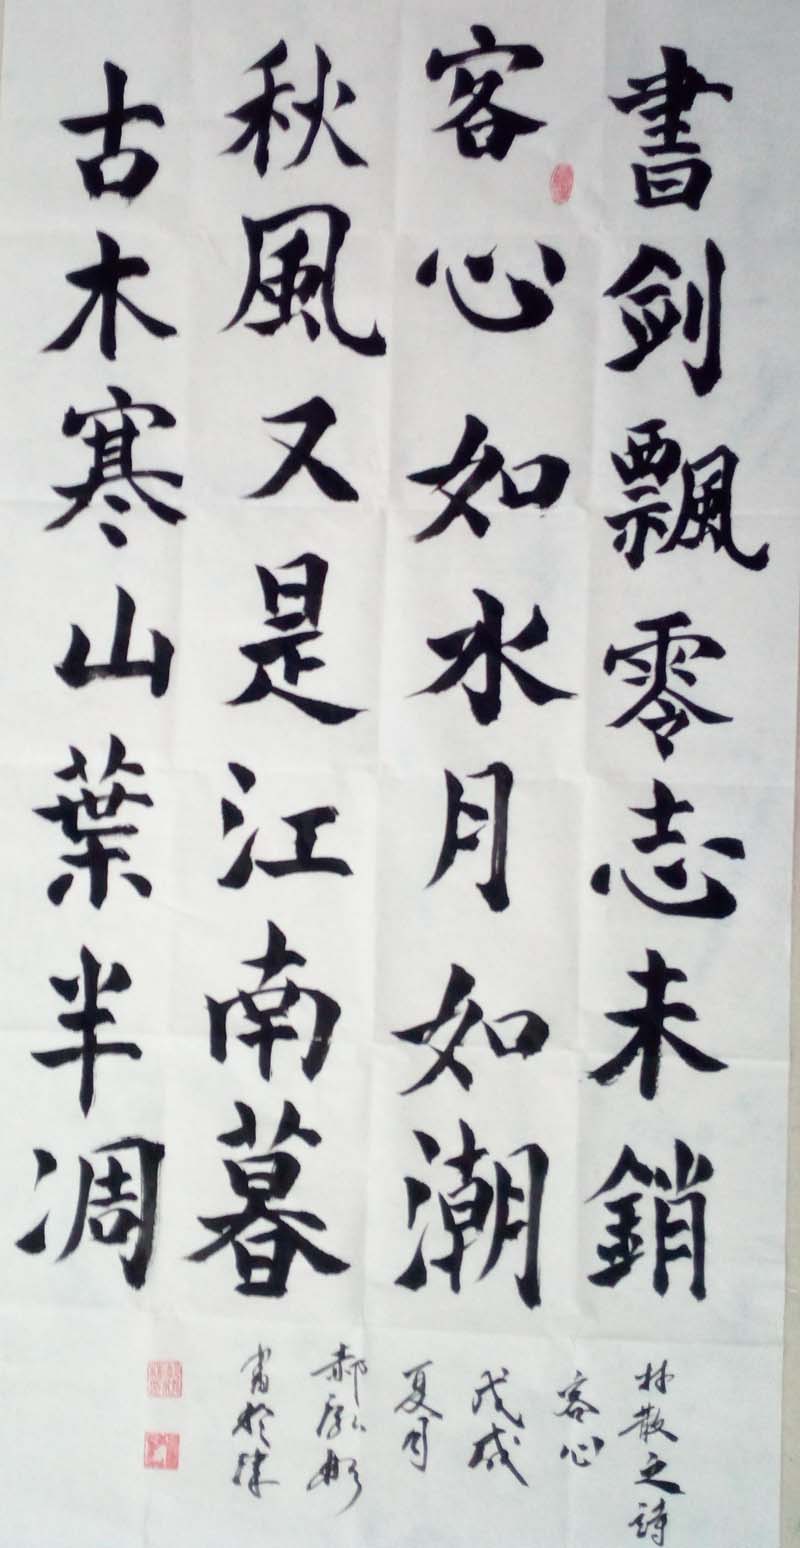 書劍飄零志未銷
客心如水月如潮
秋風又是江南暮
古木寒山葉半凋
林散之詩
客心
戊戌
夏月
郝